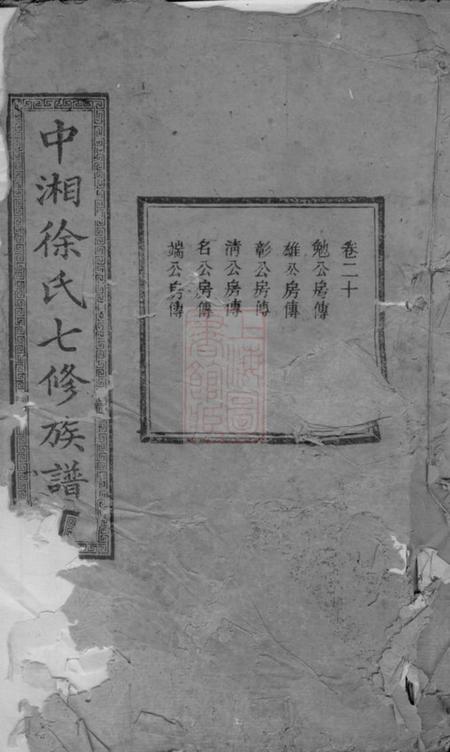 中湘徐氏七修族譜
卷二十
勉公房傳
雄公房傳
彰公房傳
清公房傳
名公房傳
端公房傳
上海圖書館藏